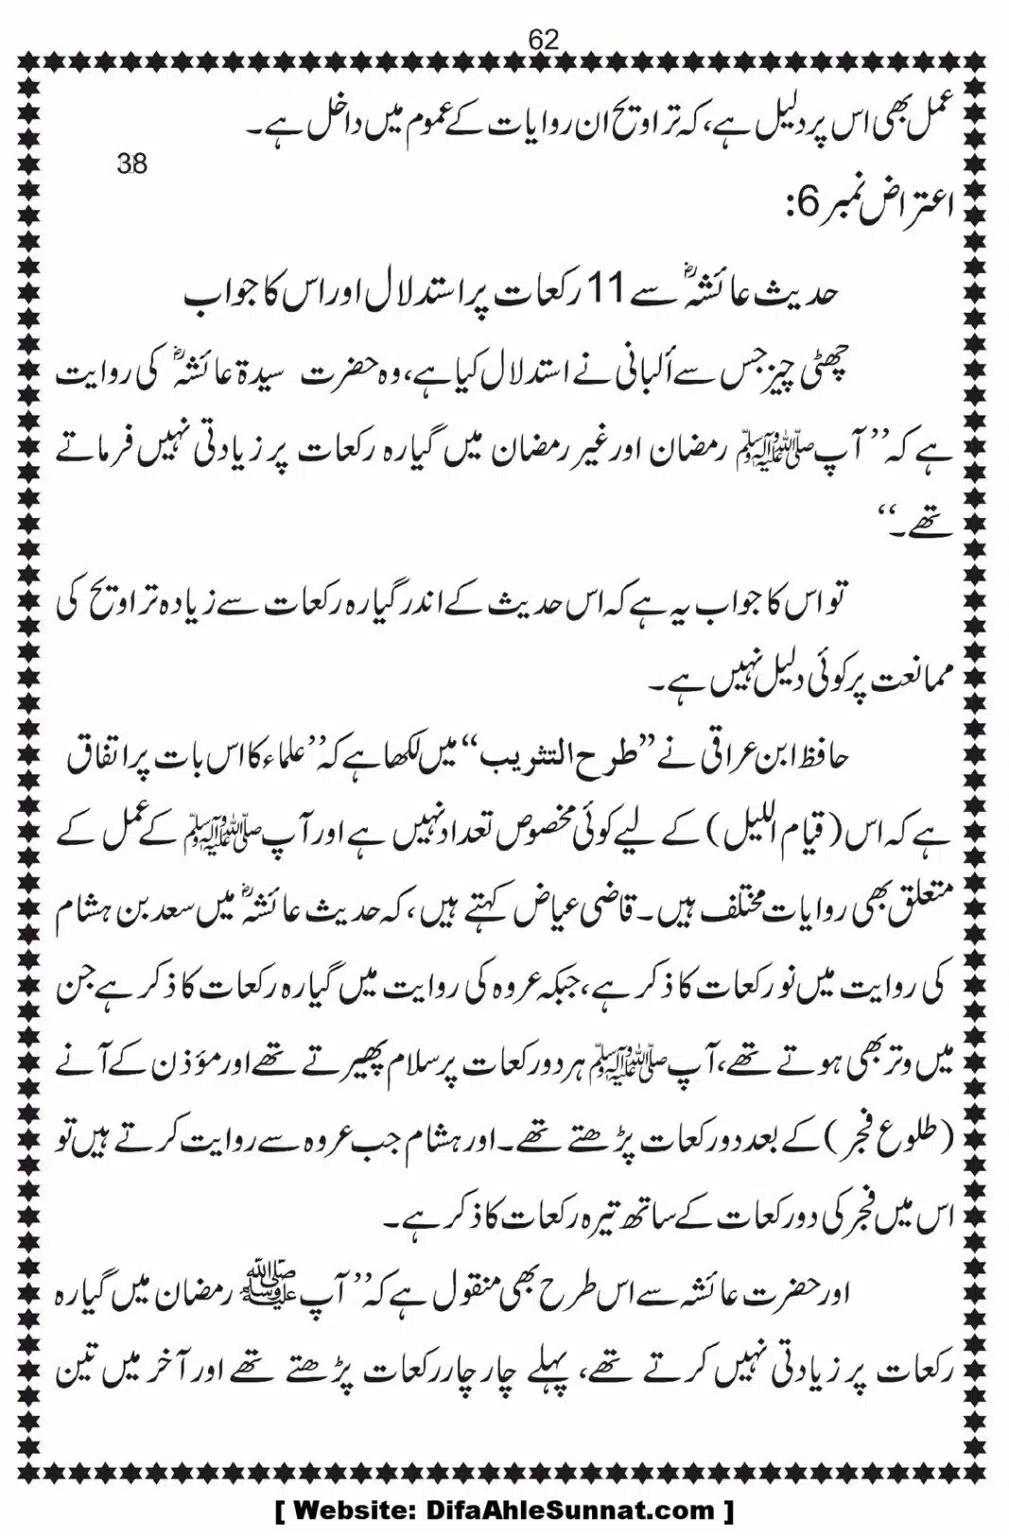 62
عمل بھی اس پر دلیل ہے، کہ تراویح ان روایات کے عموم میں داخل ہے۔
38
اعتراض نمبر 6:
حدیث عائشہؓ سے 11 رکعات پر استدلال اور اس کا جواب
چھٹی چیز جس سے ألبانی نے استدلال کیا ہے، وہ حضرت سیدة عائشہؓ کی روایت
ہے کہ ’’آپ ﷺ رمضان اور غیر رمضان میں گیارہ رکعات پر زیادتی نہیں فرماتے
تھے۔‘‘
تو اس کا جواب یہ ہے کہ اس حدیث کے اندر گیارہ رکعات سے زیادہ تراویح کی
ممانعت پر کوئی دلیل نہیں ہے۔
حافظ ابن عراقی نے ’’طرح التثریب‘‘ میں لکھا ہے کہ ’’علماء کا اس بات پر اتفاق
ہے کہ اس (قیام اللیل) کے لیے کوئی مخصوص تعداد نہیں ہے اور آپ ﷺ کے عمل کے
متعلق بھی روایات مختلف ہیں۔ قاضی عیاض کہتے ہیں، کہ حدیث عائشہؓ میں سعد بن ہشام
کی روایت میں نو رکعات کا ذکر ہے، جبکہ عروہ کی روایت میں گیارہ رکعات کا ذکر ہے جن
میں وتر بھی ہوتے تھے، آپ ﷺ ہر دو رکعات پر سلام پھیرتے تھے اور مؤذن کے آنے
(طلوع فجر) کے بعد دو رکعات پڑھتے تھے۔ اور ہشام جب عروہ سے روایت کرتے ہیں تو
اس میں فجر کی دو رکعات کے ساتھ تیرہ رکعات کا ذکر ہے۔
اور حضرت عائشہ سے اس طرح بھی منقول ہے کہ ’’آپ ﷺ رمضان میں گیارہ
رکعات پر زیادتی نہیں کرتے تھے، پہلے چار چار رکعات پڑھتے تھے اور آخر میں تین
[ Website: DifaAhleSunnat.com ]